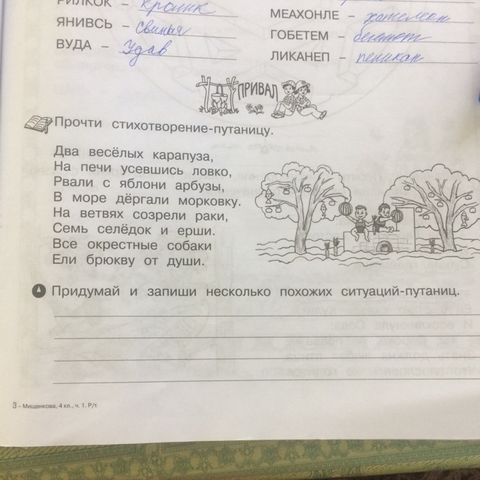 РИЛКОК – кролик
ЯНИВСЬ – свинья
ВУДА – Удав
МЕАХОНЛЕ – хамелеон
ГОБЕТЕМ – бегемот
ЛИКАНЕП – пеликан
ПРИВАЛ
Прочти стихотворение-путаницу.
Два весёлых карапуза,
На печи усевшись ловко,
Рвали с яблони арбузы,
В море дёргали морковку.
На ветвях созрели раки,
Семь селёдок и ерши.
Все окрестные собаки
Ели брюкву от души.
Придумай и запиши несколько похожих ситуаций-путаниц.
3 – Мищенкова, 4 кл., ч. 1. Р/т